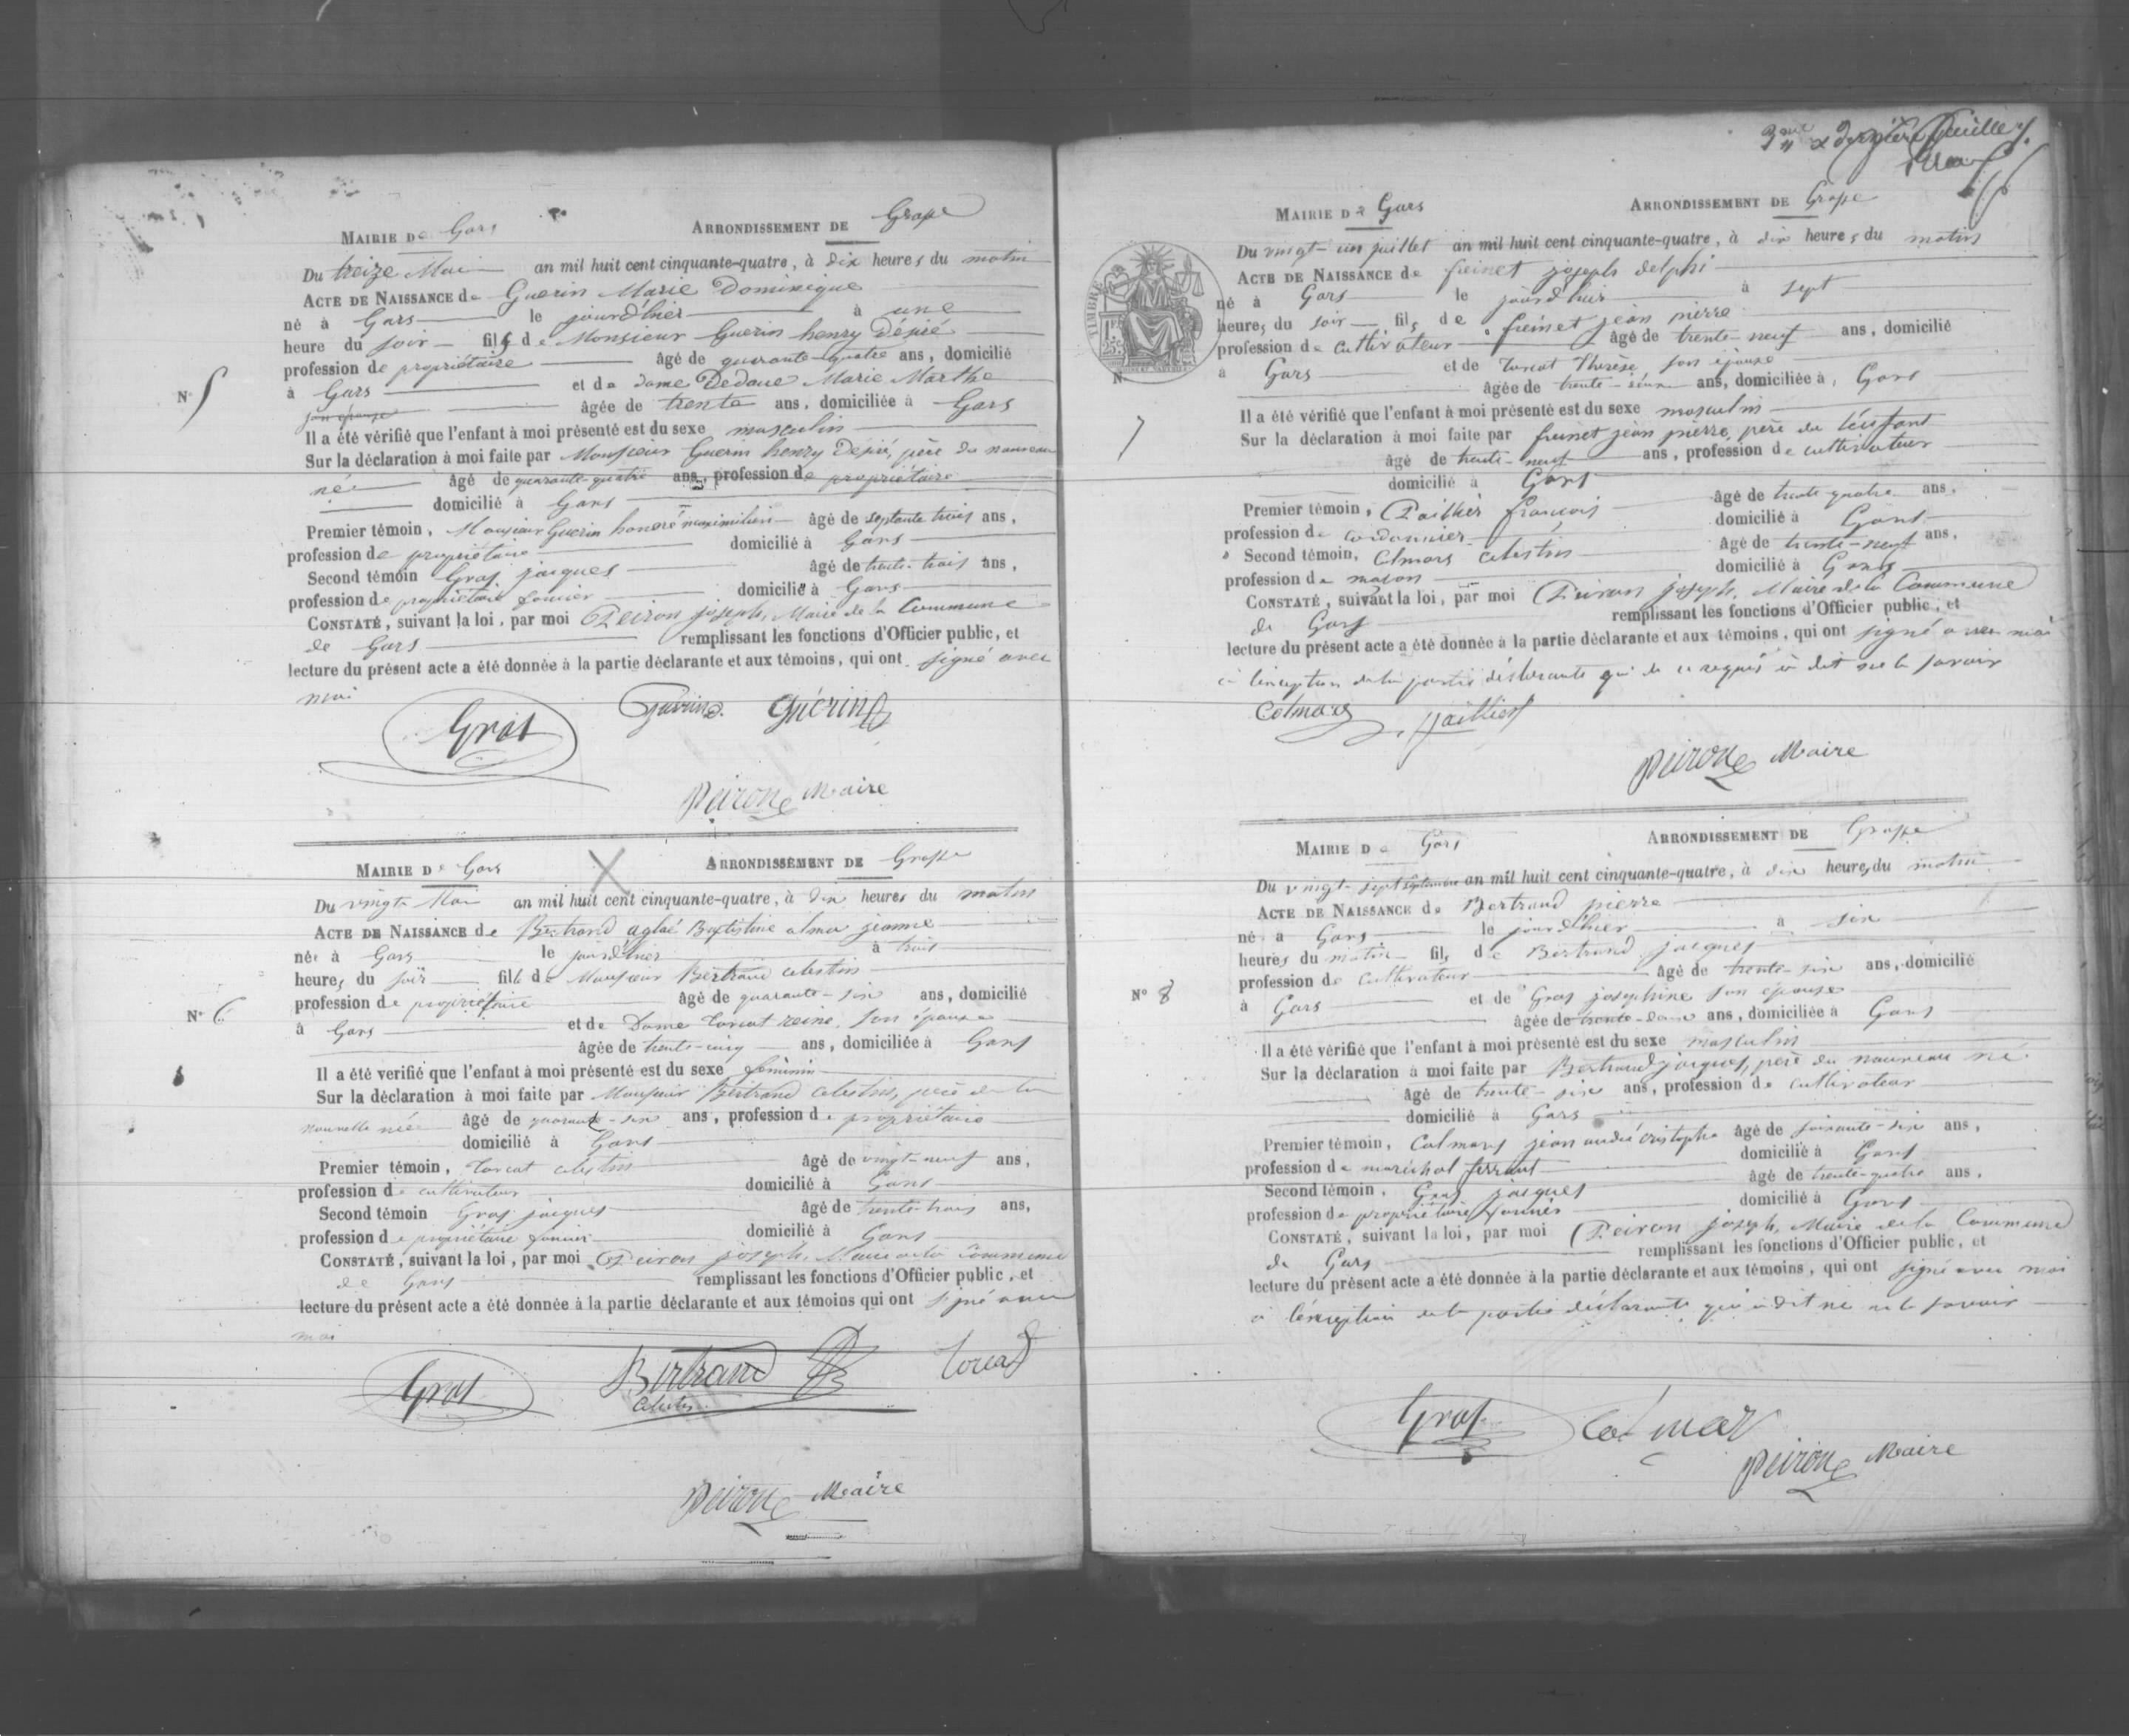 Mairie de Gars Arrondissement de Grasse
Du treize Mai an mil huit cent cinquante-quatre, à dix heures du matin
Acte de Naissance de Guerin Marie Dominique
né à Gars le jourd'hier à une
heure du soir fils de Monsieur Guerin henry Désiré
profession de propriétaire âgé de quarante-quatre ans, domicilié
à Gars et de dame Dedoue Marie Marthe
son épouse âgée de trente ans, domiciliée à Gars
Il a été vérifié que l'enfant à moi présenté est du sexe masculin
Sur la déclaration à moi faite par Monsieur Guerin henry Désiré, père du nouveau
né âgé de quarante-quatre ans, profession de propriétaire
domicilié à Gars
Premier témoin, Monsieur Guerin honoré maximilien âgé de septante trois ans,
profession de propriétaire domicilié à Gars
Second témoin Gras jacques âgé de trente-trois ans,
profession de propriétaire foncier domicilié à Gars
Constaté, suivant la loi, par moi Peiron joseph, Maire de la Commune
de Gars remplissant les fonctions d'Officier public, et
lecture du présent acte a été donnée à la partie déclarante et aux témoins, qui ont signé avec
moi
N° 5
Gras Guerin Guérin
Peiron Maire
Mairie de Gars Arrondissement de Grasse
Du vingt Mai an mil huit cent cinquante-quatre, à dix heures du matin
Acte de Naissance de Bertrand aglaé Baptistine alma jeanne
née à Gars le jourd'hier à trois
heures du soir fille de Monsieur Bertrand celestin
profession de propriétaire âgé de quarante-six ans, domicilié
N° 6
à Gars et de Dame Torcat reine, son épouse
âgée de trente-cinq ans, domiciliée à Gars
Il a été verifié que l'enfant à moi présenté est du sexe féminin
Sur la déclaration à moi faite par Monsieur Bertrand celestin, père de la
nouvelle née âgé de quarante-six ans, profession de propriétaire
domicilié à Gars
Premier témoin, Torcat celestin âgé de vingt-neuf ans,
profession de cultivateur domicilié à Gars
Second témoin Gras jacques âgé de trente-trois ans,
profession de propriétaire foncier domicilié à Gars
Constaté, suivant la loi, par moi Peiron joseph, Maire de la Commune
de Gars remplissant les fonctions d'Officier public, et
lecture du présent acte a été donnée à la partie déclarante et aux témoins qui ont signé avec
moi
Gras Bertrand Torcat
Celestin
Peiron Maire
3me & dernière feuillet
Mairie de Gars Arrondissement de Grasse
Du vingt-un juillet an mil huit cent cinquante-quatre, à dix heures du matin
Acte de Naissance de freinet joseph delphi
né à Gars le jourd'hier à sept
heures du soir fils de freinet jean pierre
profession de cultivateur âgé de trente-neuf ans, domicilié
à Gars et de Torcat Thérèse son épouse
TIMBRE
N° 7
âgée de trente-six ans, domiciliée à Gars
Il a été vérifié que l'enfant à moi présenté est du sexe masculin
Sur la déclaration à moi faite par freinet jean pierre, père de l'enfant
âgé de trente-neuf ans, profession de cultivateur
domicilié à Gars
Premier témoin, Paillier françois âgé de trente-quatre ans,
profession de cordonnier domicilié à Gars
Second témoin, Colmars celestin âgé de trente-neuf ans,
profession de maçon domicilié à Gars
Constaté, suivant la loi, par moi Peiron joseph, Maire de la Commune
de Gars remplissant les fonctions d'Officier public, et
lecture du présent acte a été donnée à la partie déclarante et aux témoins, qui ont signé avec moi
à l'exception de la partie déclarante qui de ce requis a dit ne le savoir
Colmars Paillier
Peiron Maire
Mairie de Gars Arrondissement de Grasse
Du vingt-sept septembre an mil huit cent cinquante-quatre, à dix heures du matin
Acte de Naissance de Bertrand pierre
né à Gars le jourd'hier à six
heures du matin fils de Bertrand jacques
profession de cultivateur âgé de trente-six ans, domicilié
N° 8
à Gars et de Gras josephine son épouse
âgée de trente-deux ans, domiciliée à Gars
Il a été vérifié que l'enfant à moi présenté est du sexe masculin
Sur la déclaration à moi faite par Bertrand jacques, père du nouveau né
âgé de trente-six ans, profession de cultivateur
domicilié à Gars
Premier témoin, Colmars jean andré cristophe âgé de soixante-six ans,
profession de maréchal ferrant domicilié à Gars
Second témoin, Gras jacques âgé de trente-quatre ans,
profession de propriétaire foncier domicilié à Gars
Constaté, suivant la loi, par moi Peiron joseph, Maire de la Commune
de Gars remplissant les fonctions d'Officier public, et
lecture du présent acte a été donnée à la partie déclarante et aux témoins, qui ont signé avec moi
à l'exception de la partie déclarante qui a dit ne le savoir
Gras Colmars
Peiron Maire